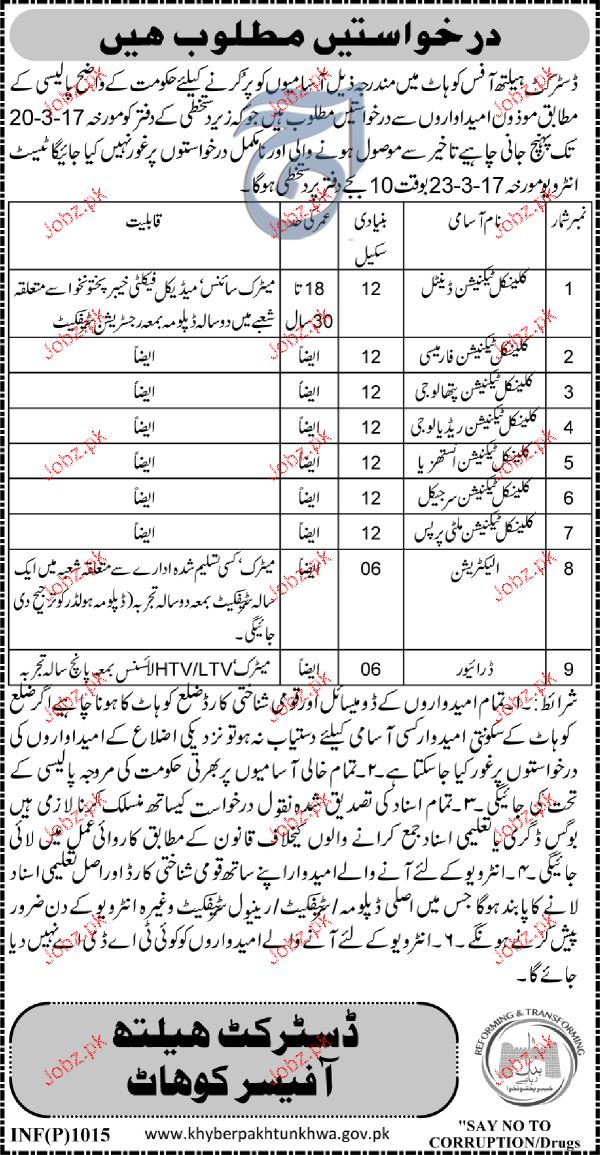 درخواستیں مطلوب ھیں
ڈسٹرکٹ ہیلتھ آفس کوہاٹ میں مندرجہ ذیل آسامیوں کو پُر کرنے کیلئے حکومت کے واضح پالیسی کے
مطابق موذون امیدواروں سے درخواستیں مطلوب ہیں جو کہ زیر دستخطی کے دفتر کو مورخہ 17-3-20
تک پہنچ جانی چاہیے تاخیر سے موصول ہونے والی اور نامکمل درخواستوں پر غور نہیں کیا جائیگا ٹیسٹ
انٹرویو مورخہ 17-3-23 بوقت 10 بجے دفتر زیر دستخطی ہوگا۔
نمبر شمار نام آسامی بنیادی سکیل عمر کی حد قابلیت
1 کلینکل ٹیکنیشن ڈینٹل 12 18 تا 30 سال میٹرک سائنس، میڈیکل فیکلٹی خیبر پختونخوا سے متعلقہ
شعبے میں دو سالہ ڈپلومہ بمعہ رجسٹریشن سرٹیفکیٹ
2 کلینکل ٹیکنیشن فارمیسی 12 ایضاً ایضاً
3 کلینکل ٹیکنیشن پتھالوجی 12 ایضاً ایضاً
4 کلینکل ٹیکنیشن ریڈیالوجی 12 ایضاً ایضاً
5 کلینکل ٹیکنیشن انستھزیا 12 ایضاً ایضاً
6 کلینکل ٹیکنیشن سرجیکل 12 ایضاً ایضاً
7 کلینکل ٹیکنیشن ملٹی پرپس 12 ایضاً ایضاً
8 الیکٹریشن 06 ایضاً میٹرک، کسی تسلیم شدہ ادارے سے متعلقہ شعبہ میں ایک
سالہ سرٹیفکیٹ بمعہ دو سالہ تجربہ (ڈپلومہ ہولڈر کو ترجیح دی
جائیگی۔
9 ڈرائیور 06 ایضاً میٹرک، HTV/LTV لائسنس بمعہ پانچ سالہ تجربہ
شرائط:۔ ۱۔ تمام امیدواروں کے ڈومیسائل اور قومی شناختی کارڈ ضلع کوہاٹ کا ہونا چاہیے اگر ضلع
کوہاٹ کے سکونتی امیدوار کسی آسامی کیلئے دستیاب نہ ہو تو نزدیکی اضلاع کے امیدواروں کی
درخواستوں پر غور کیا جاسکتا ہے۔ ۲۔ تمام خالی آسامیوں پر بھرتی حکومت کی مروجہ پالیسی کے
تحت کی جائیگی۔ ۳۔ تمام اسناد کی تصدیق شدہ نقول درخواست کیساتھ منسلک کرنا لازمی ہیں
بوگس ڈگری یا تعلیمی اسناد جمع کرانے والوں کیخلاف قانون کے مطابق کاروائی عمل میں لائی
جائیگی۔ ۴۔ انٹرویو کے لئے آنے والے امیدوار اپنے ساتھ قومی شناختی کارڈ اور اصل تعلیمی اسناد
لانے کا پابند ہوگا جس میں اصلی ڈپلومہ/سرٹیفکیٹ/رینیول سرٹیفکیٹ وغیرہ انٹرویو کے دن ضرور
پیش کرنے ہونگے۔ ۶۔ انٹرویو کے لئے آنے والے امیدواروں کو کوئی ٹی اے ڈی اے نہیں دیا
جائے گا۔
ڈسٹرکٹ ھیلتھ
آفیسر کوھاٹ
REFORMING & TRANSFORMING
خیبر پختونخوا
INF(P)1015
www.khyberpakhtunkhwa.gov.pk
"SAY NO TO
CORRUPTION/Drugs
Jobz.pk